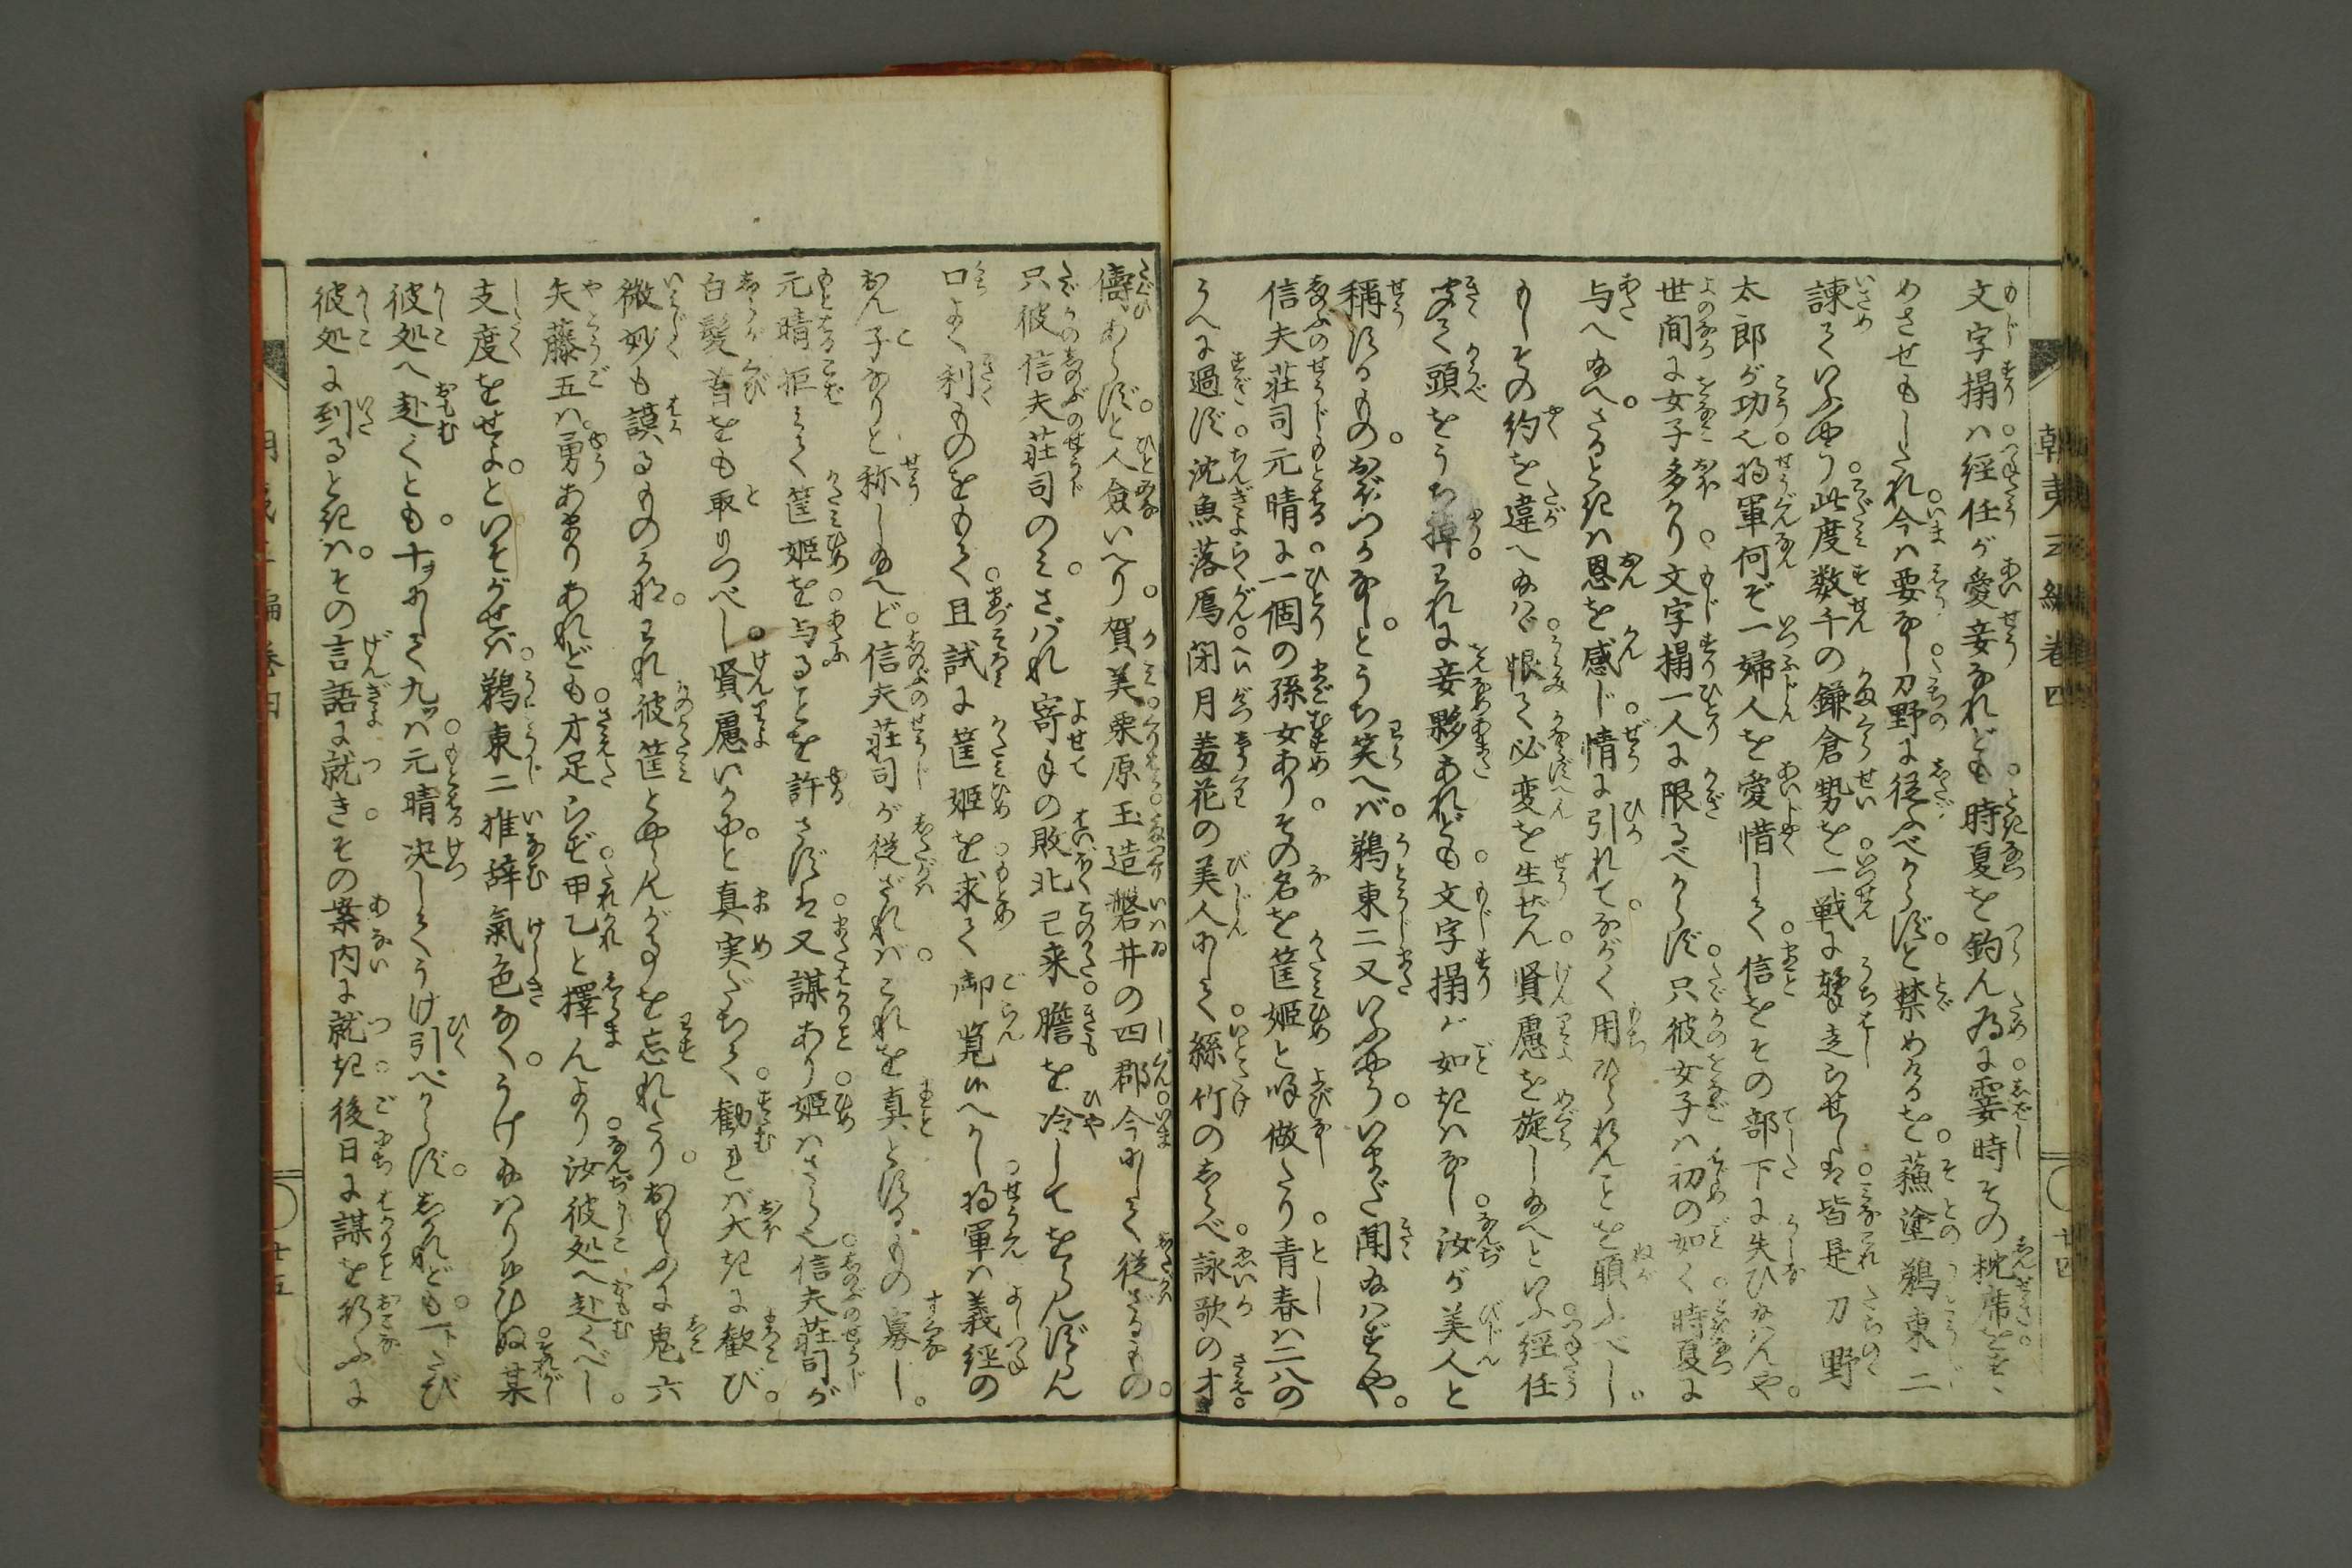 朝夷三編巻四
廿四
文字摺ハ経任が愛妾なれども時夏を釣ん為に霎時その枕席をすゝ
めさせもしたれ今ハ要なし刀野に従ふべからずと禁めけるを蘓塗鵜東二
諫ていふやう此度数千の鎌倉勢を一戦に走らせしハ皆是刀野
太郎が功也将軍何ぞ一婦人を愛惜して信をその部下に失ひ給ハんや
世間に女子多かり文字摺一人に限るべからず只彼女子ハ初の如く時夏に
与へ給へさるときハ恩を感じ情に引れてながく用ひられんことを願ふべし
もしその約を違へ給ハゞ恨て必変を生ぜん賢慮を旋し給へといふ経任
聞て頭をうち掉われに妾夥あれども文字摺が如きハなし汝が美人と
稱するものおぼつかなしとうち笑へバ鵜東二又いふやういまだ聞給ハずや
信夫荘司元晴に一個の孫女ありその名を筐姫と喚做たり青春ハ二八の
うへに過ず沈魚落鴈閉月羞花の美人にして絲竹のしらべ詠歌の才
儔あらずと人僉いへり賀美栗原玉造磐井の四郡今にして従ざるもの
只彼信夫荘司のミさバれ寄手の敗北已来膽を冷してをらんずらん
口よく利ものをもて且試に筐姫を求て御覧候へかし将軍ハ義経の
おん子なりと称し給へど信夫荘司が従ざれバこれを真とするもの寡し
元晴拒みて筐姫を与ることを許さずハ又謀あり姫ハさら也信夫荘司が
白髪首をも取りつべし賢慮いかにと真実だちて勸れバ大きに歓び
微妙も謨るものかなわれ彼筐とやらんが事を忘れたりおもふに鬼六
矢藤五ハ勇あまりあれども才足らず甲乙と擇んより汝彼処へ赴くべし
支度をせよといそがせバ鵜東二推辞氣色なくうけ給ハり候ひぬ某
彼処へ赴くとも十ヲにして九ツハ元晴决してうけ引べからずしかれども一トたび
彼処に到るときハその言語に就きその案内に就き後日に謀を行ふに
廿五